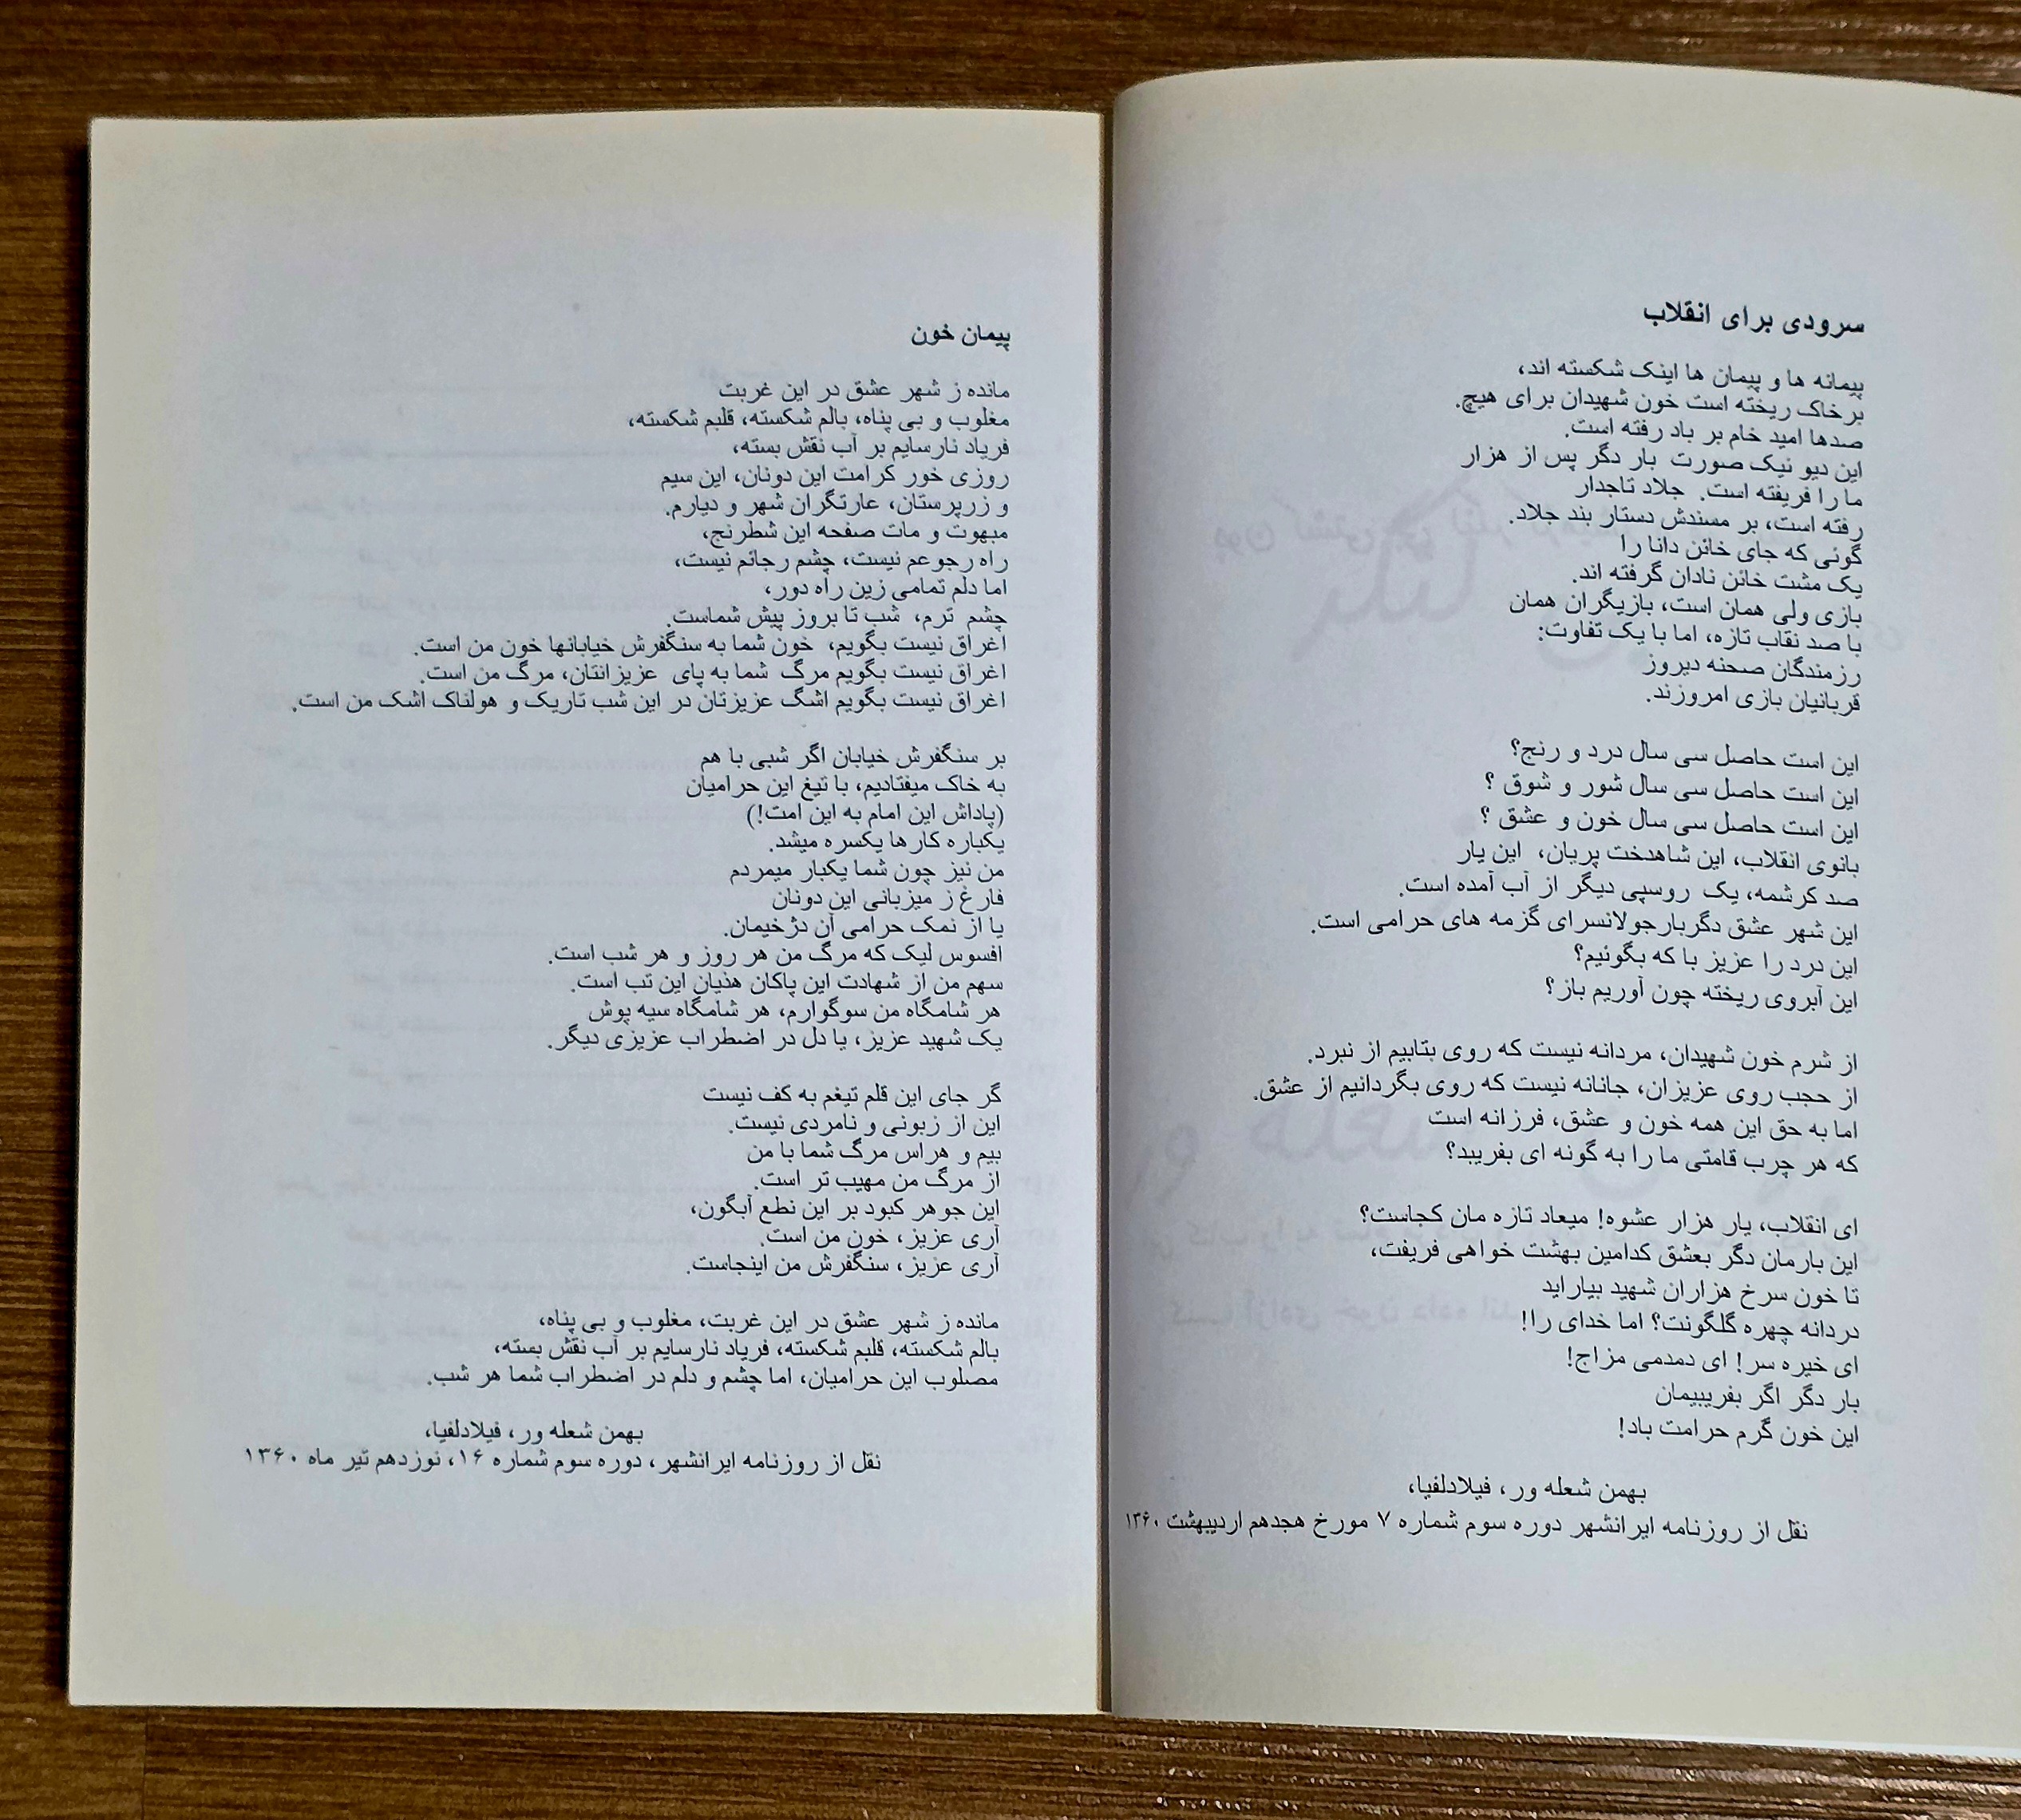 سرودی برای انقلاب
پیمانه ها و پیمان ها اینک شکسته اند،
برخاک ریخته است خون شهیدان برای هیچ.
صدها امید خام بر باد رفته است.
این دیو نیک صورت بار دگر پس از هزار
ما را فریفته است. جلاد تاجدار
رفته است، بر مسندش دستار بند جلاد.
گوئی که جای خائن دانا را
یک مشت خائن نادان گرفته اند.
بازی ولی همان است، بازیگران همان
با صد نقاب تازه، اما با یک تفاوت:
رزمندگان صحنه دیروز
قربانیان بازی امروزند.
این است حاصل سی سال درد و رنج؟
این است حاصل سی سال شور و شوق ؟
این است حاصل سی سال خون و عشق ؟
بانوی انقلاب، این شاهدخت پریان، این یار
صد کرشمه، یک روسپی دیگر از آب آمده است.
این شهر عشق دگربارجولانسرای گزمه های حرامی است.
این درد را عزیز با که بگوئیم؟
این آبروی ریخته چون آوریم باز؟
از شرم خون شهیدان، مردانه نیست که روی بتابیم از نبرد.
از حجب روی عزیزان، جانانه نیست که روی بگردانیم از عشق.
اما به حق این همه خون و عشق، فرزانه است
که هر چرب قامتی ما را به گونه ای بفریبد؟
ای انقلاب، یار هزار عشوه! میعاد تازه مان کجاست؟
این بارمان دگر بعشق کدامین بهشت خواهی فریفت،
تا خون سرخ هزاران شهید بیاراید
دردانه چهره گلگونت؟ اما خدای را!
ای خیره سر! ای دمدمی مزاج!
بار دگر اگر بفریبیمان
این خون گرم حرامت باد!
بهمن شعله ور، فیلادلفیا،
نقل از روزنامه ایرانشهر دوره سوم شماره ۷ مورخ هجدهم اردیبهشت ۱۳۶۰
پیمان خون
مانده ز شهر عشق در این غربت
مغلوب و بی پناه، بالم شکسته، قلبم شکسته،
فریاد نارسایم بر آب نقش بسته،
روزی خور کرامت این دونان، این سیم
و زرپرستان، عارتگران شهر و دیارم.
مبهوت و مات صفحه این شطرنج،
راه رجوعم نیست، چشم رجائم نیست،
اما دلم تمامی زین راه دور،
چشم ترم، شب تا بروز پیش شماست.
اغراق نیست بگویم، خون شما به سنگفرش خیابانها خون من است.
اغراق نیست بگویم مرگ شما به پای عزیزانتان، مرگ من است.
اغراق نیست بگویم اشگ عزیزتان در این شب تاریک و هولناک اشک من است.
بر سنگفرش خیابان اگر شبی با هم
به خاک میفتادیم، با تیغ این حرامیان
(پاداش این امام به این امت!)
یکباره کارها یکسره میشد.
من نیز چون شما یکبار میمردم
فارغ ز میزبانی این دونان
یا از نمک حرامی آن دژخیمان.
افسوس لیک که مرگ من هر روز و هر شب است.
سهم من از شهادت این پاکان هذیان این تب است.
هر شامگاه من سوگوارم، هر شامگاه سیه پوش
یک شهید عزیز، یا دل در اضطراب عزیزی دیگر.
گر جای این قلم تیغم به کف نیست
این از زبونی و نامردی نیست.
بیم و هراس مرگ شما با من
از مرگ من مهیب تر است.
این جوهر کبود بر این نطع آبگون،
آری عزیز، خون من است.
آری عزیز، سنگفرش من اینجاست.
مانده ز شهر عشق در این غربت، مغلوب و بی پناه،
بالم شکسته، قلبم شکسته، فریاد نارسایم بر آب نقش بسته،
مصلوب این حرامیان، اما چشم و دلم در اضطراب شما هر شب.
بهمن شعله ور، فیلادلفیا،
نقل از روزنامه ایرانشهر، دوره سوم شماره ۱۶، نوزدهم تیر ماه ۱۳۶۰